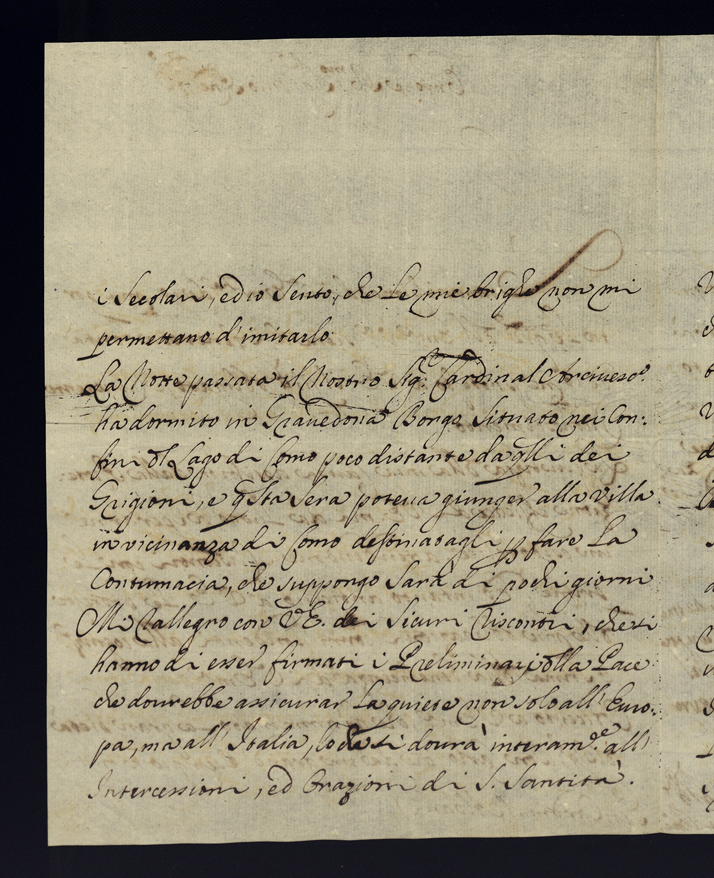 i Secolari, ed io Sento, che Le mie brighe non mi
permettano d'imitarlo
La Notte passata il Nostro Sig.r Cardinal Arcivesc.o
ha dormito in Gravedona Borgo Situato nei Con-
fini dl Lago di Como poco distante da qlli dei
Grigioni, e qsta Sera poteva giunger alla Villa
in vicinanza di Como destinatagli p fare La
Contumacia, che suppongo Sarà di pochi giorni
Mi rallegro con V.E. dei Sicuri riscontri, che si
hanno di esser firmati i Preliminarj dlla Pace
che dovrebbe assicurar La quiete non solo all' Euro-
pa, ma all' Italia, lo che si dovrà interam.te all'
Intercessioni, ed Orazioni di S. Santità.